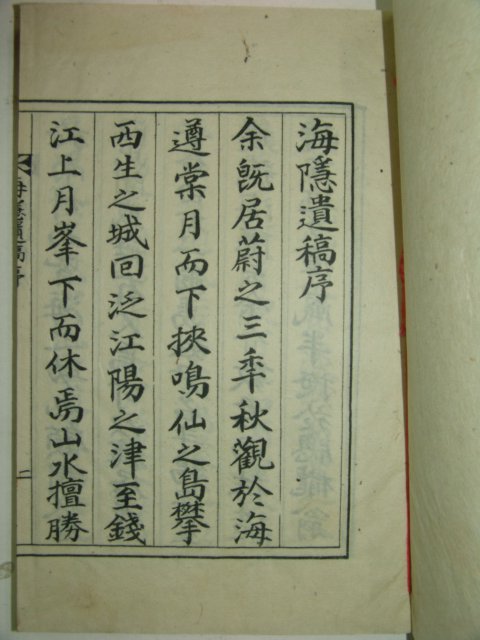 海隱遺稿序
余旣居蔚之三秊秋觀於海
遵棠月而下挾鳴仙之島攀
西生之城回泛江陽之津至錢
江上月峯下而休焉山水擅勝
海隱遺稿序